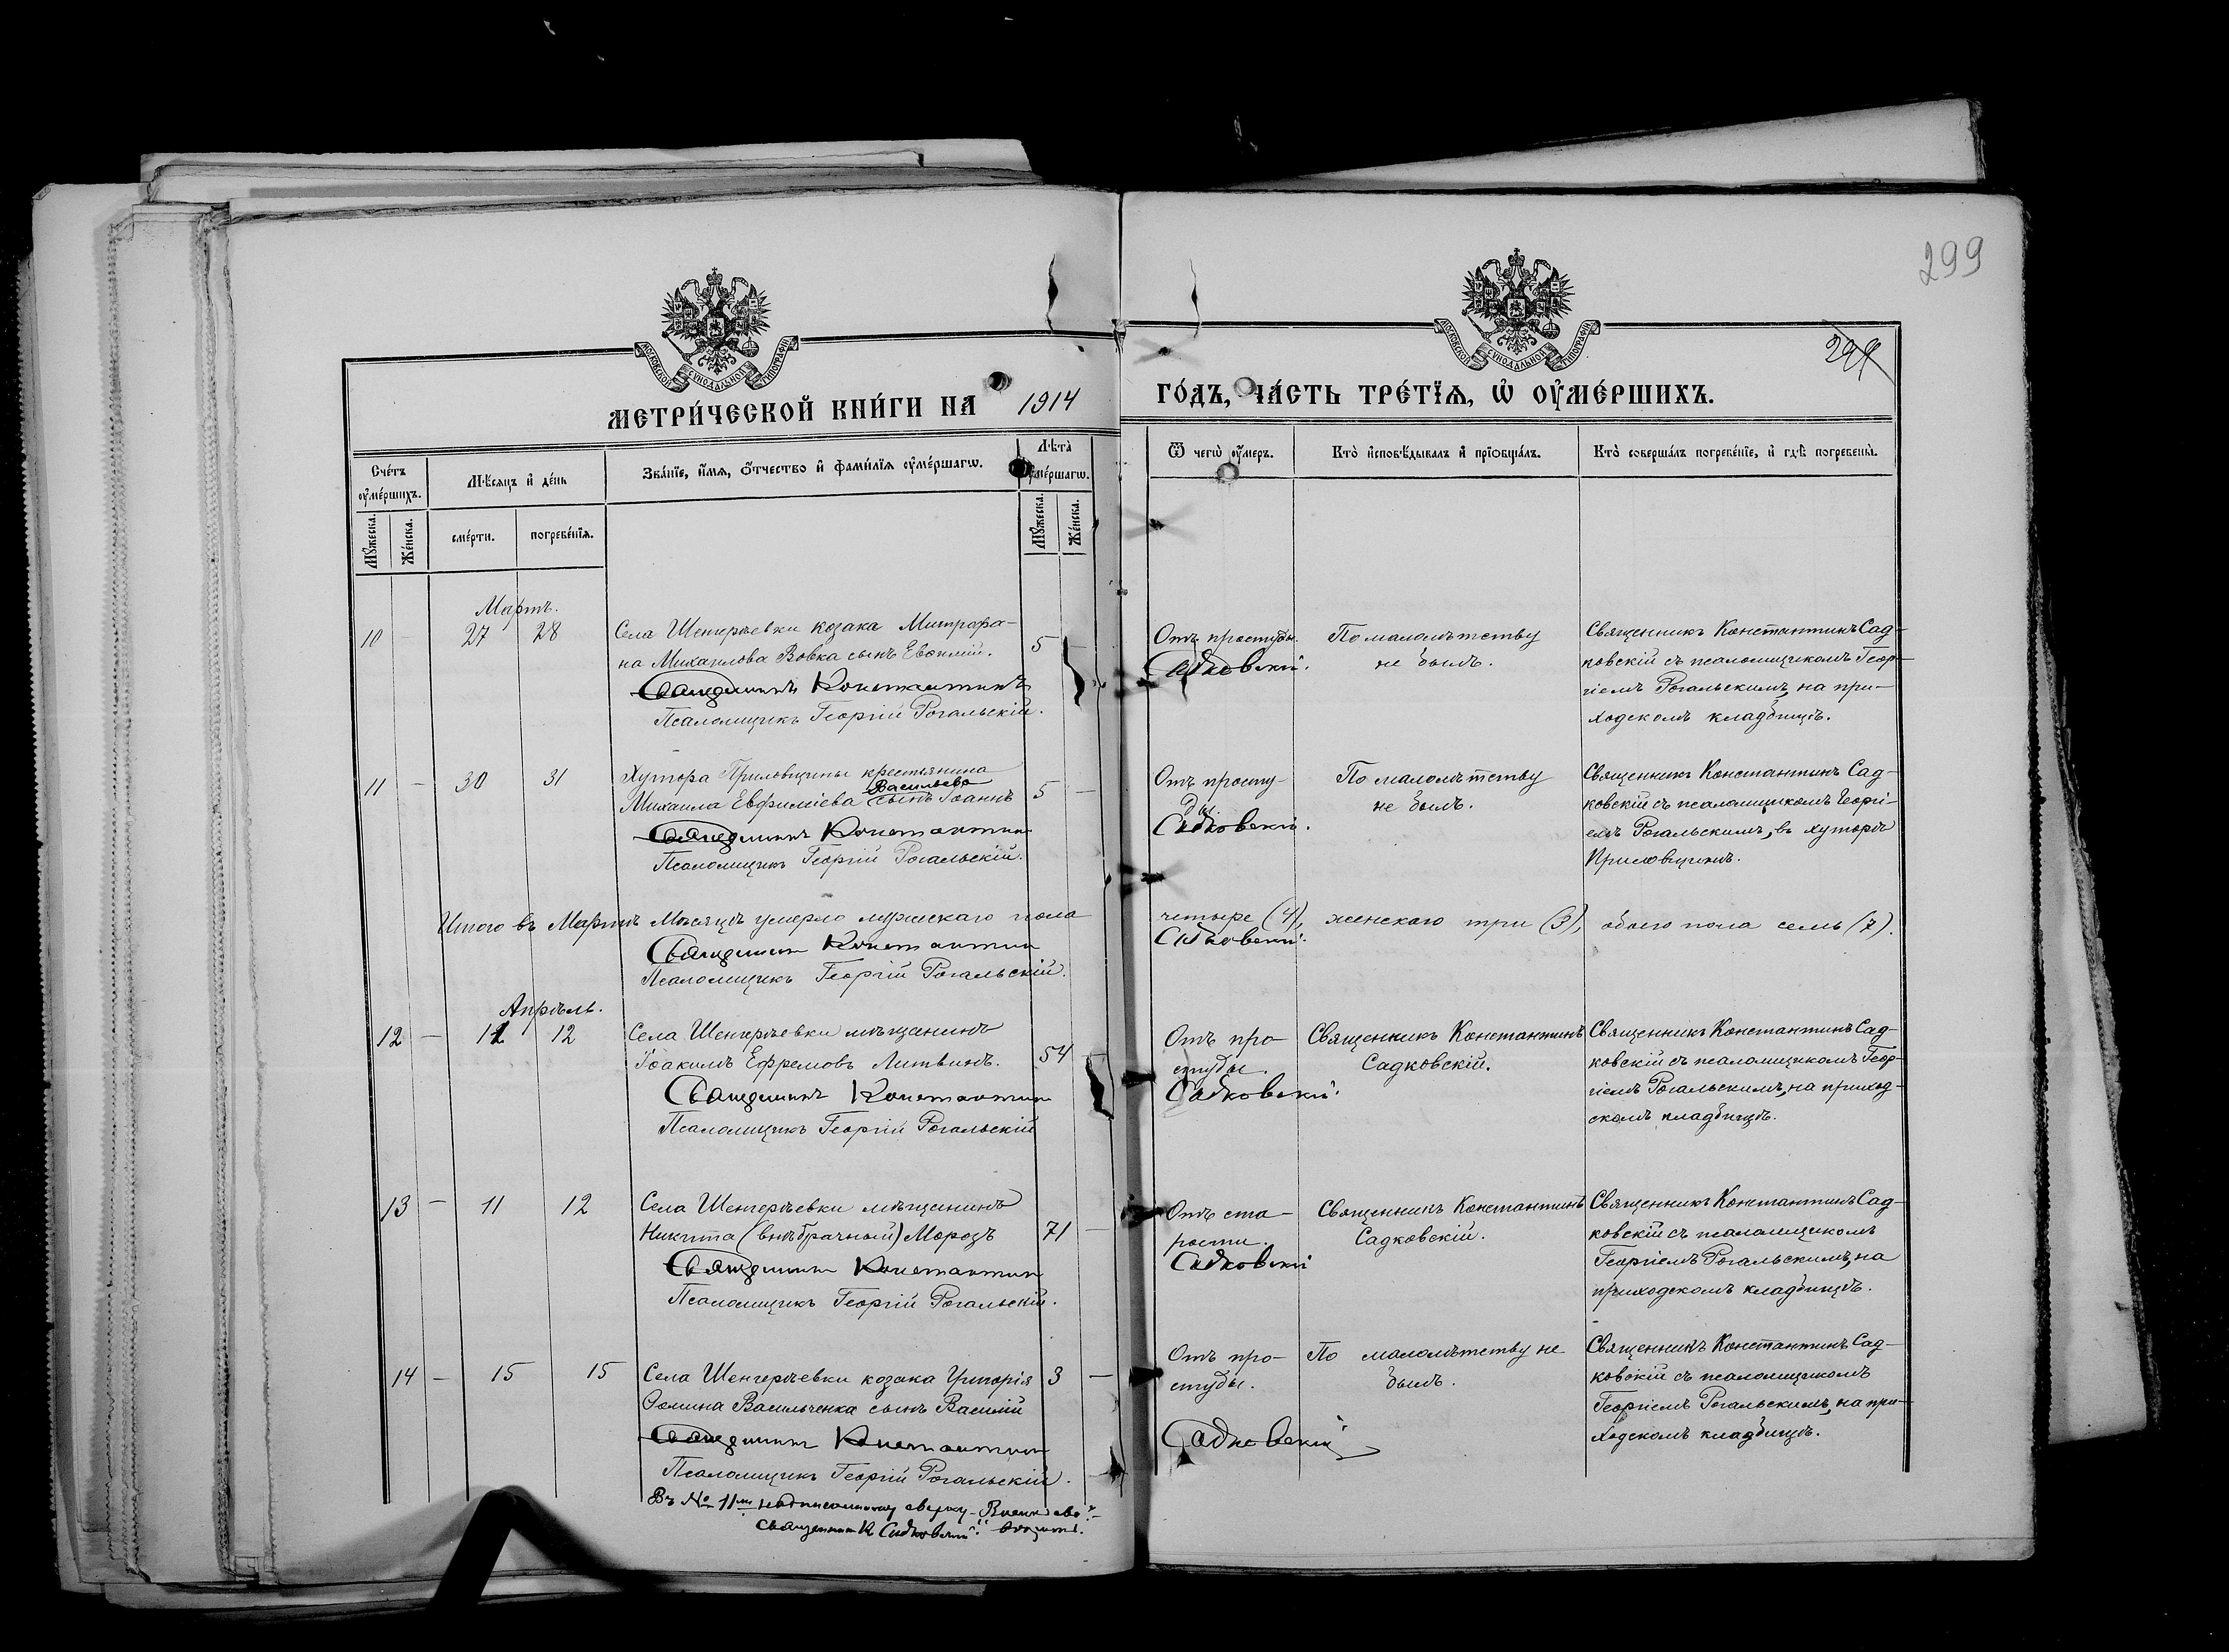 299
299
МОСКОВСКОЙ СѴНОДАЛЬНОЙ ТИПОГРАФІИ
МОСКОВСКОЙ СѴНОДАЛЬНОЙ ТИПОГРАФІИ
МЕТРИ́ЧЕСКОЙ КНИ́ГИ НА 1914 ГО́ДЪ, ЧА́СТЬ ТРЕ́ТЇѦ, Ѡ҆ ОУ҆МЕ́РШИХЪ.
Сче́тъ оу҆ме́ршихъ.
Мꙋ́жеска.
Же́нска.
Мѣ́сѧцъ и҆ де́нь
сме́рти.
погребе́нїѧ.
Зва́нїе, и҆́мѧ, ѻ҆́тчество и҆ фами́лїѧ оу҆ме́ршагѡ.
Лѣ́та оу҆ме́ршагѡ.
Мꙋ́жеска.
Же́нска.
Ѿ чегѡ̀ оу҆́меръ.
Кто̀ и҆сповѣ́дывалъ и҆ прїѡбща́лъ.
Кто̀ соверша́лъ погребе́нїе, и҆ гдѣ̀ погребены̀.
Мартъ.
10 — 27 28 Села Шенгерѣевки козака Митрофа- 5 —
на Михаилова Вовка сынъ Евѳимій.
Священникъ Константинъ Садковскій.
Псаломщикъ Георгій Рогальскій.
Отъ простуды.
По малолѣтству
не былъ.
Священникъ Константинъ Сад-
ковскій съ псаломщикомъ Геор-
гіемъ Рогальскимъ, на при-
ходскомъ кладбищѣ.
11 — 30 31 Хутора Приловщины крестьянина
Васильева
Михаила Евфиміева сынъ Іоаннъ 5 —
Священникъ Константинъ Садковскій.
Псаломщикъ Георгій Рогальскій.
Отъ просту-
ды.
По малолѣтству
не былъ.
Священникъ Константинъ Сад-
ковскій съ псаломщикомъ Георгі-
емъ Рогальскимъ, въ хуторѣ
Приловщинѣ.
Итого въ Мартѣ Мѣсяцѣ умерло мужескаго пола четыре (4), женскаго три (3), обоего пола семь (7).
Священникъ Константинъ Садковскій.
Псаломщикъ Георгій Рогальскій.
Апрѣль.
12 — 11 12 Села Шенгерѣевки мѣщанинъ
Іоакимъ Ефремовъ Литвинъ. 54 —
Священникъ Константинъ Садковскій.
Псаломщикъ Георгій Рогальскій
Отъ про-
студы.
Священникъ Константинъ
Садковскій.
Священникъ Константинъ Сад-
ковскій съ псаломщикомъ Геор-
гіемъ Рогальскимъ, на приход-
скомъ кладбищѣ.
13 — 11 12 Села Шенгерѣевки мѣщанинъ
Никита (внѣбрачный) Морозъ 71 —
Священникъ Константинъ Садковскій
Псаломщикъ Георгій Рогальскій.
Отъ ста-
рости.
Священникъ Константинъ
Садковскій.
Священникъ Константинъ Сад-
ковскій съ псаломщикомъ
Георгіемъ Рогальскимъ, на
приходскомъ кладбищѣ.
14 — 15 15 Села Шенгерѣевки козака Григорія 3 —
Ѳомина Васильченка сынъ Василій
Священникъ Константинъ Садковскій
Псаломщикъ Георгій Рогальскій.
Отъ про-
студы.
По малолѣтству не
былъ.
Священникъ Константинъ Сад-
ковскій съ псаломщикомъ
Георгіемъ Рогальскимъ, на при-
ходскомъ кладбищѣ.
Въ № 11мъ надписанному сверху
священникъ К Садковскій.